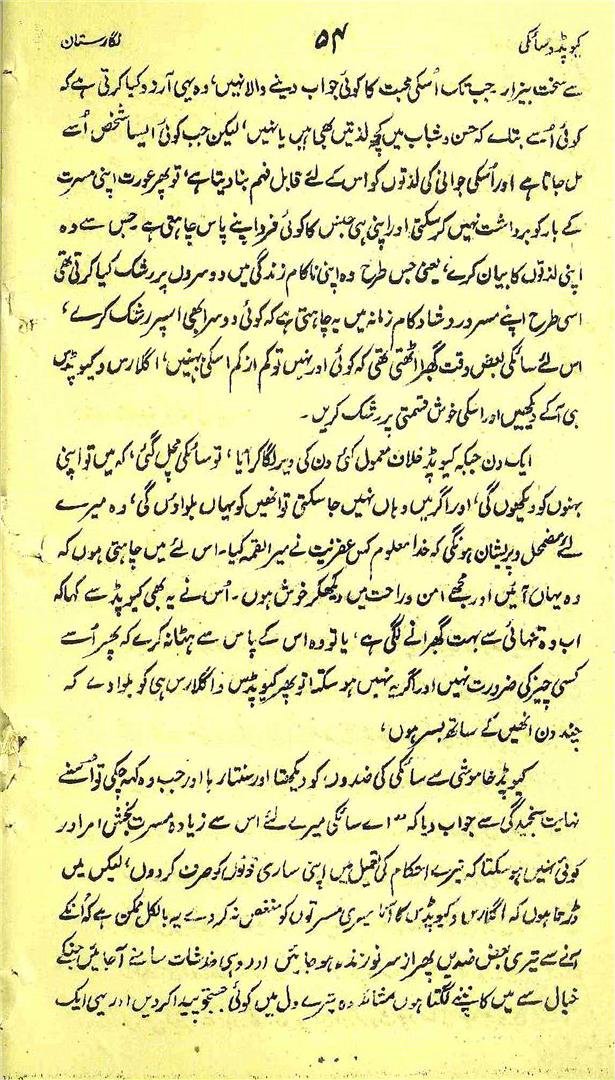 کیوپڈ و سائکی ۵۴ نگارستان
سے سخت بیزار۔ جب تک اُسکی محبت کا کوئی جواب دینے والا نہیں‘ وہ یہی آرزو کیا کرتی ہے کہ
کوئی اُسے بتائے کہ حسن و شباب میں کچھ لذتیں بھی ہیں یا نہیں‘ لیکن جب کوئی ایسا شخص اُسے
مل جاتا ہے اور اُسکی جوانی کی لذتوں کو اس کے لئے قابل فہم بنا دیتا ہے‘ تو پھر عورت اپنی مسرت
کے بار کو برداشت نہیں کر سکتی اور اپنی ہی جنس کا کوئی فرد اپنے پاس چاہتی ہے جس سے وہ
اپنی لذتوں کا بیان کرے‘ یعنی جس طرح وہ اپنی ناکام زندگی میں دوسروں پر رشک کیا کرتی تھی
اسی طرح اپنے مسرور و شادکام زمانہ میں یہ چاہتی ہے کہ کوئی دوسرا بھی اسپر رشک کرے‘
اس لئے سائکی بعض وقت گھبرا اٹھتی تھی کہ کوئی اور نہیں تو کم از کم اسکی بہنیں‘ اگلارس و کیوپڈیس
ہی آ کے دیکھیں اور اسکی خوش قسمتی پر رشک کریں۔
ایک دن جبکہ کیوپڈ خلاف معمول کئی دن کی دیر لگا کر آیا‘ تو سائکی مچل گئی‘ کہ میں تو اپنی
بہنوں کو دیکھوں گی‘ اور اگر میں وہاں نہیں جا سکتی تو انھیں کو یہاں بلواؤں گی‘ وہ میرے
لئے مضمحل و پریشان ہونگی کہ خدا معلوم کس عفریت نے میرا لقمہ کیا۔ اس لئے میں چاہتی ہوں کہ
وہ یہاں آئیں اور مجھے امن و راحت میں دیکھکر خوش ہوں۔ اُس نے یہ بھی کیوپڈ سے کہا کہ
اب وہ تنہائی سے بہت گھبرانے لگی ہے‘ یا تو وہ اس کے پاس سے ہٹا نہ کرے کہ پھر اُسے
کسی چیز کی ضرورت نہیں اور اگر یہ نہیں ہو سکتا تو پھر کیوپڈیس و اگلارس ہی کو بلوا دے کہ
چند دن انھیں کے ساتھ بسر ہوں‘
کیوپڈ خاموشی سے سائکی کی ضدوں کو دیکھتا اور سنتا رہا اور جب وہ کہہ چکی تو اُسنے
نہایت سنجیدگی سے جواب دیا کہ ”اے سائکی میرے لئے اس سے زیادہ مسرت بخش امر اور
کوئی نہیں ہو سکتا کہ تیرے احکام کی تعمیل میں اپنی ساری قوتوں کو صرف کر دوں‘ لیکن میں
ڈرتا ہوں کہ اگلارس و کیوپڈیس کا آنا میری مسرتوں کو منغص نہ کر دے یہ بالکل ممکن ہے کہ اُنکے
آنے سے تیری بعض ضدیں پھر از سر نو زندہ ہو جائیں اور وہی خدشات سامنے آ جائیں جنکے
خیال سے میں کانپنے لگتا ہوں مثلاً وہ تیرے دل میں کوئی جستجو پیدا کر دیں اور یہی ایک